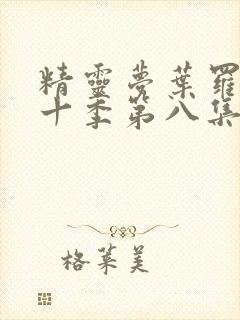 精靈夢葉羅
十季第八集
格萊美